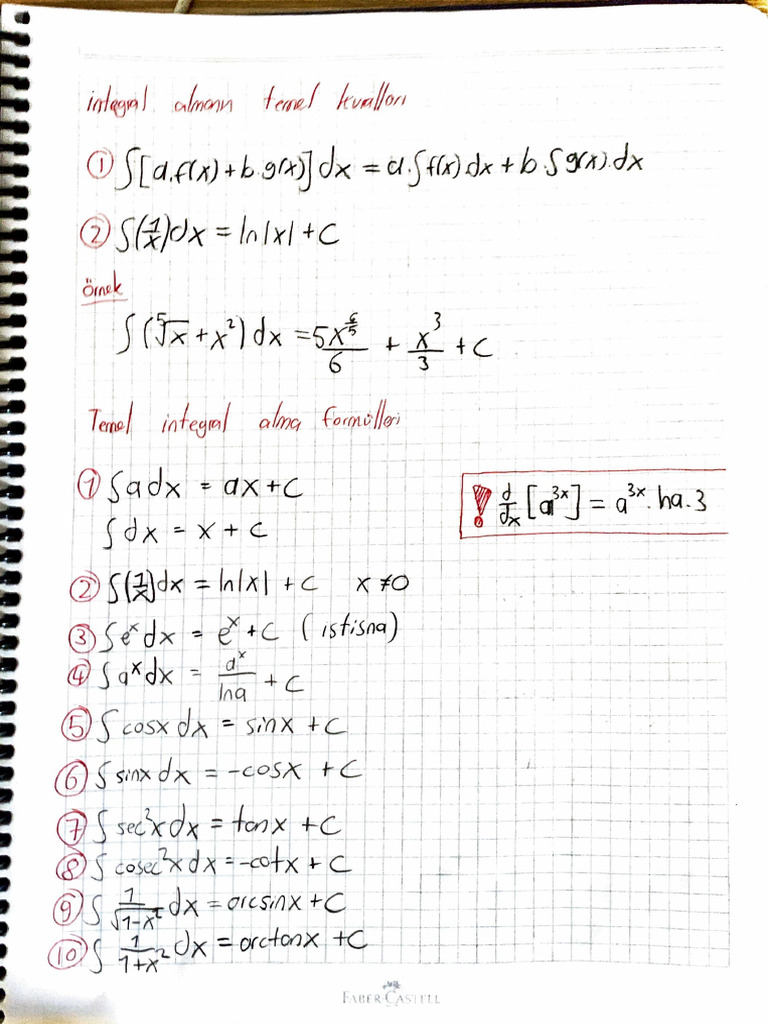 integral almanın temel kuralları
① ∫[a.f(x)+b.g(x)]dx = a.∫f(x).dx+b.∫g(x).dx
② ∫(1/x)dx = ln|x|+C
örnek
∫(⁵√x+x²)dx = 5x^(6/5)/6 + x³/3 + C
Temel integral alma formülleri
① ∫a dx = ax+C
∫dx = x+C
! d/dx [a^(3x)] = a^(3x).lna.3
② ∫(1/x)dx = ln|x|+C x≠0
③ ∫e^x dx = e^x+C (istisna)
④ ∫a^x dx = a^x/lna + C
⑤ ∫cosx dx = sinx+C
⑥ ∫sinx dx = -cosx +C
⑦ ∫sec²x dx = tanx +C
⑧ ∫cosec²x dx = -cotx + C
⑨ ∫1/√(1-x²) dx = arcsinx+C
⑩ ∫1/(1+x²) dx = arctanx +C
FABER-CASTELL